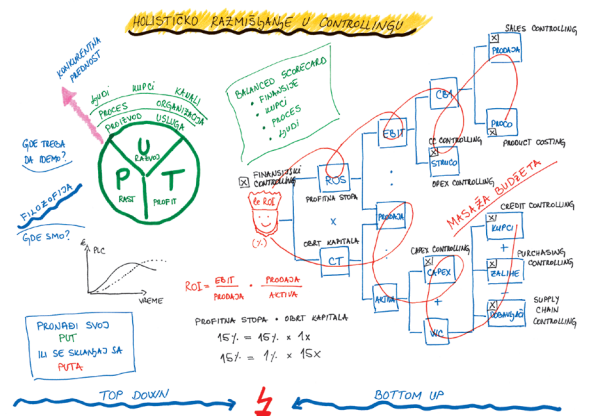 HOLISTIČKO RAZMIŠLJANJE U CONTROLLINGU
KONKURENTNA
PREDNOST
LJUDI KUPCI KANALI
PROCES ORGANIZACIJA
PROIZVOD USLUGA
U
RAZVOJ
P
RAST
T
PROFIT
GDE TREBA
DA IDEMO?
FILOZOFIJA
GDE SMO?
€
PLC
VREME
PRONAĐI SVOJ
PUT
ILI SE SKLANJAJ SA
PUTA
BALANCED SCORECARD
• FINANSIJE
• KUPCI
• PROCES
• LJUDI
X FINANSIJSKI
CONTROLLING
ROI
(%)
ROS
PROFITNA STOPA
X
OBRT KAPITALA
CT
EBIT
:
PRODAJA
:
AKTIVA
CBA
CC CONTROLLING
X
STRUCO
OPEX CONTROLLING
SALES CONTROLLING
X
PRODAJA
PROCO
X
PRODUCT COSTING
MASAŽA BUDŽETA
CAPEX CONTROLLING
X
CAPEX
+
WC
CREDIT CONTROLLING
X
KUPCI
+
PURCHASING
CONTROLLING
X
ZALIHE
-
SUPPLY
CHAIN
CONTROLLING
X
DOBAVLJAČI
ROI = EBIT / PRODAJA • PRODAJA / AKTIVA
PROFITNA STOPA • OBRT KAPITALA
15% = 15% x 1x
15% = 1% x 15x
TOP DOWN
BOTTOM UP